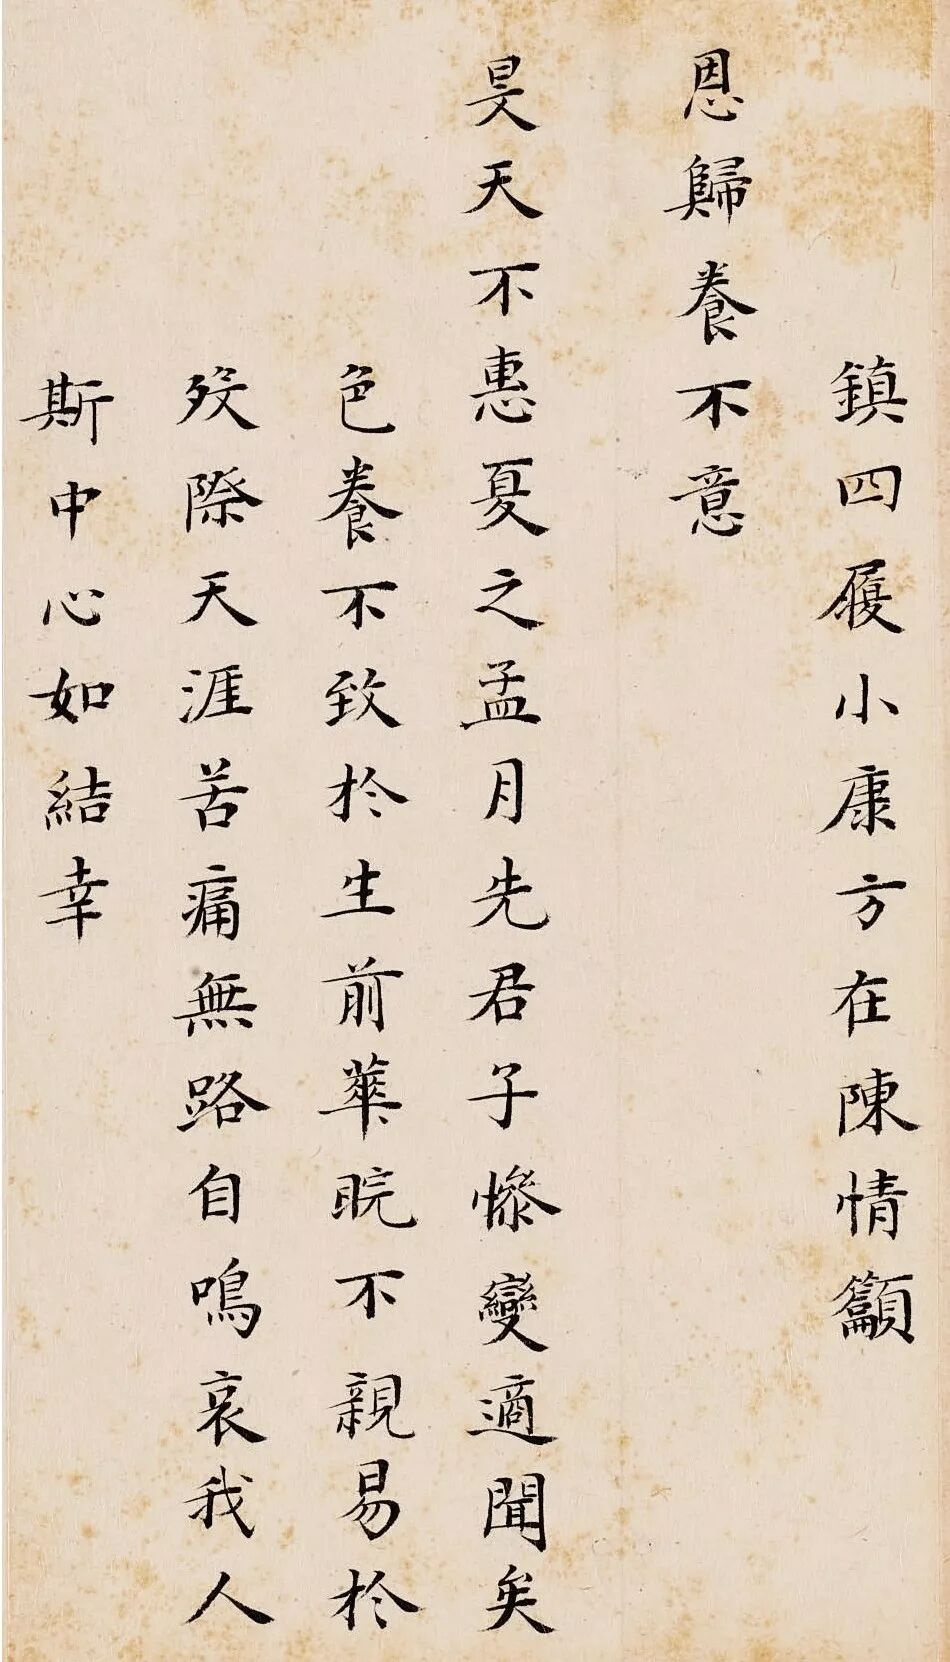 鎮四履小康方在陳情籲
恩歸養不意
昊天不惠夏之孟月先君子慘變適聞矣
色養不致於生前華睆不親易於
歿際天涯苦痛無路自鳴哀我人
斯中心如結幸